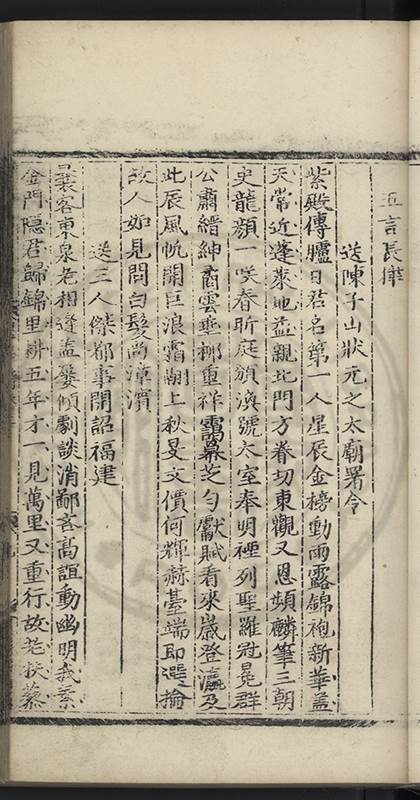 五言長律
送陳子山狀元之太廟署令
紫殿傳臚日君名第一人星辰金榜動雨露錦袍新華蓋
天常近蓬萊地益親北門方眷切東觀又恩頻麟筆三朝
史龍顏一咲春昕庭頒渙號太室奉明禋列聖羅冠冕群
公肅縉紳矞雲垂栁重祥靄羃芝勻獻賦看來歲登瀛及
此辰風帆開巨浪霜翮上秋旻文價何輝赫臺端即選掄
故人如見問白髮尚漳濱
送三人傑都事開詔福建
裘客東泉老相逢盖屢傾劇談消鄙吝高誼動幽明我素
金門隠君歸錦里耕五年才一見萬里又重行故老扶藜